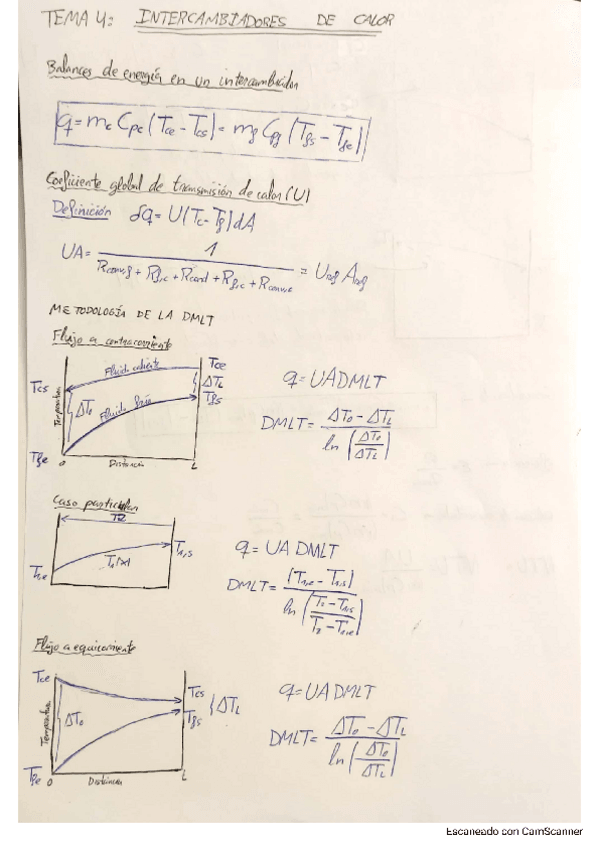 TEMA 4: INTERCAMBIADORES DE CALOR
Balances de energía en un intercambiador
q = mc Cpc (Tce - Tcs) = mf Cpf (Tfs - Tfe)
Coeficiente global de transmisión de calor (U)
Definición δq = U(Tc - Tf) dA
UA = 1 / (Rconv,f + Rf,c + Rcond + Rf,c + Rconv,c) = Uref Aref
METODOLOGÍA DE LA DMLT
Flujo a contracorriente
Tce
Fluido caliente
Tcs
ΔTL
Tfs
ΔT0
Fluido frío
Temperatura
Tfe
0 Distancia L
q = UA DMLT
DMLT = (ΔT0 - ΔTL) / ln(ΔT0/ΔTL)
Caso particular
T2
T1,s
T1(x)
T1,e
q = UA DMLT
DMLT = (T1,e - T1,s) / ln((T2 - T1,s)/(T2 - T1,e))
Flujo a equicorriente
Tce
Tcs
ΔTL
Tfs
ΔT0
Temperatura
Tfe
0 Distancia L
q = UA DMLT
DMLT = (ΔT0 - ΔTL) / ln(ΔT0/ΔTL)
Escaneado con CamScanner